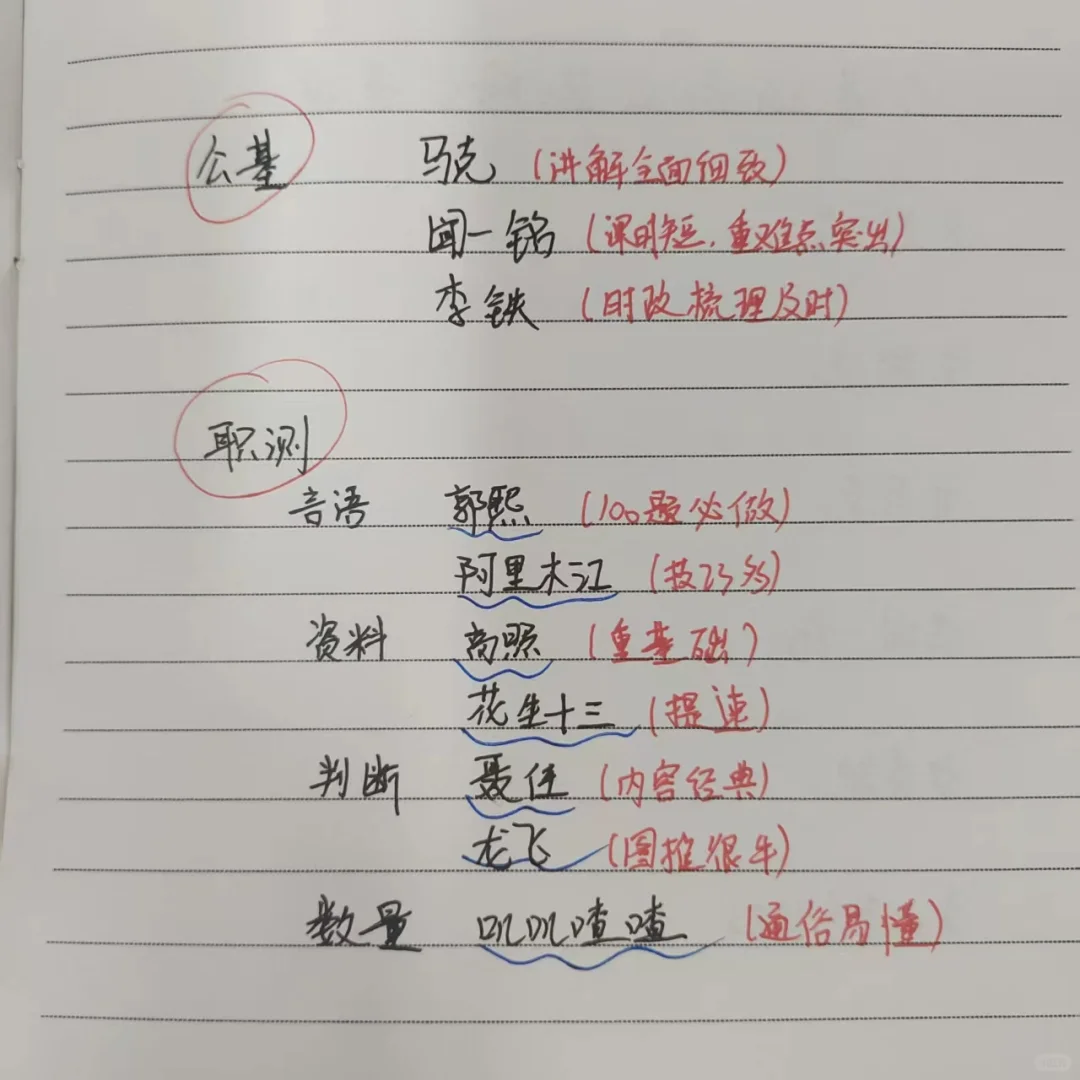 公基 马克 (讲解全面细致)
闻一铭 (课时短，重难点突出)
李铁 (时政梳理及时)
职测
言语 郭熙 (100题必做)
阿里木江 (技巧多)
资料 高照 (重基础)
花生十三 (提速)
判断 聂佳 (内容经典)
龙飞 (图推很牛)
数量 叽叽喳喳 (通俗易懂)